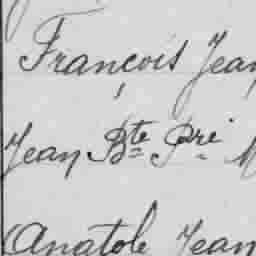 François Jean
Jean Bte Pre M
Anatole Jean